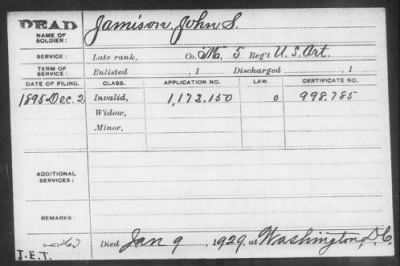 DEAD
NAME OF SOLDIER: Jamison, John S.
SERVICE: Late rank, Co. M. 5 Reg't U.S. Art.
TERM OF SERVICE: Enlisted , 1 Discharged , 1
DATE OF FILING. CLASS. APPLICATION NO. LAW. CERTIFICATE NO.
1895-Dec. 2 Invalid, 1,172,150 0 998,785
Widow,
Minor,
ADDITIONAL SERVICES:
REMARKS:
Died Jan 9, 1929, at Washington, D.C.
J.E.T.